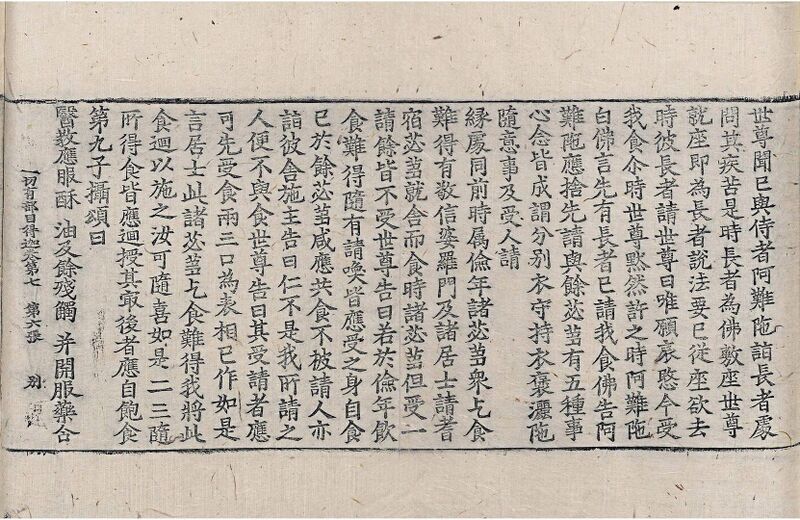 世尊聞已與侍者阿難陁詣長者處
問其疾苦是時長者為佛敷座世尊
就座即為長者說法要已從座欲去
時彼長者請世尊曰唯願哀愍今受
我食尒時世尊默然許之時阿難陁
白佛言先有長者已請我食佛告阿
難陁應捨先請與餘苾芻有五種事
心念皆成謂分別衣守持衣褒灑陁
随意事及受人請
緣處同前時属儉年諸苾芻衆乞食
難得有敬信婆羅門及諸居士請耆
宿苾芻就舍而食時諸苾芻但受一
請餘皆不受世尊告曰若於儉年飲
食難得随有請喚皆應受之身自食
已於餘苾芻咸應共食不被請人亦
詣彼舍施主告曰仁不是我所請之
人便不與食世尊告曰其受請者應
可先受食兩三口為表相已作如是
言居士此諸苾芻乞食難得我將此
食迴以施之汝可隨喜如是二三隨
所得食皆應迴授其㝡後者應自飽食
第九子攝頌曰
醫教應服酥 油及餘殘觸 并開服藥合
一切有部目得迦卷第七 第六張 別